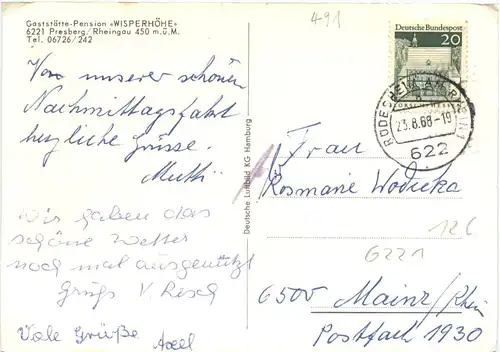 Gaststätte-Pension «WISPERHÖHE»
6221 Presberg/Rheingau 450 m.ü.M.
Tel. 06726/242
Von unserer schönen
Nachmittagsfahrt
herzliche Grüsse.
Mutti
Wir haben das
schöne Wetter
noch mal ausgenützt
Gruß V. Resch
Viele Grüße Axel
Deutsche Luftbild KG Hamburg
491
Deutsche Bundespost
20
RÜDESHEIM AM RHEIN
23.8.68-19
622
Frau
Rosmarie Wodicka
126
6221
6500 Mainz/Rhein
Postfach 1930